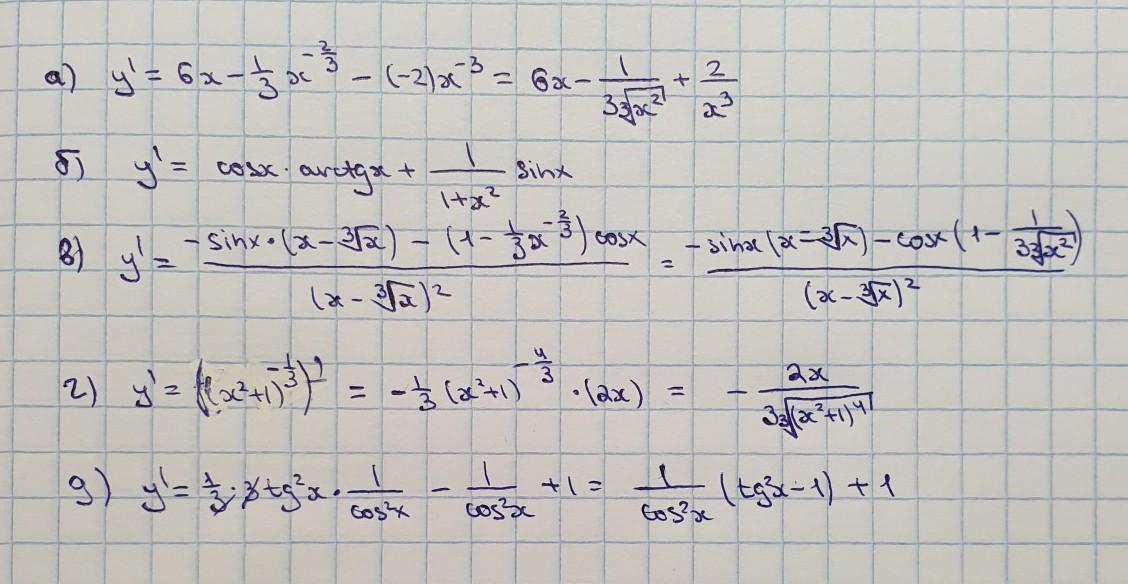 а) y' = 6x - 1/3 x^(-2/3) - (-2)x^(-3) = 6x - 1/(3∛(x²)) + 2/x³
б) y' = cosx · arctgx + 1/(1+x²) sinx
в) y' = (-sinx·(x-∛x) - (1 - 1/3 x^(-2/3)) cosx)/(x-∛x)² = (-sinx(x-∛x) - cosx(1 - 1/(3∛(x²))))/(x-∛x)²
г) y' = ((x²+1)^(-1/3))' = -1/3 (x²+1)^(-4/3) · (2x) = - 2x/(3∛((x²+1)⁴))
д) y' = 1/3 · 3 tg²x · 1/cos²x - 1/cos²x + 1 = 1/cos²x (tg²x - 1) + 1